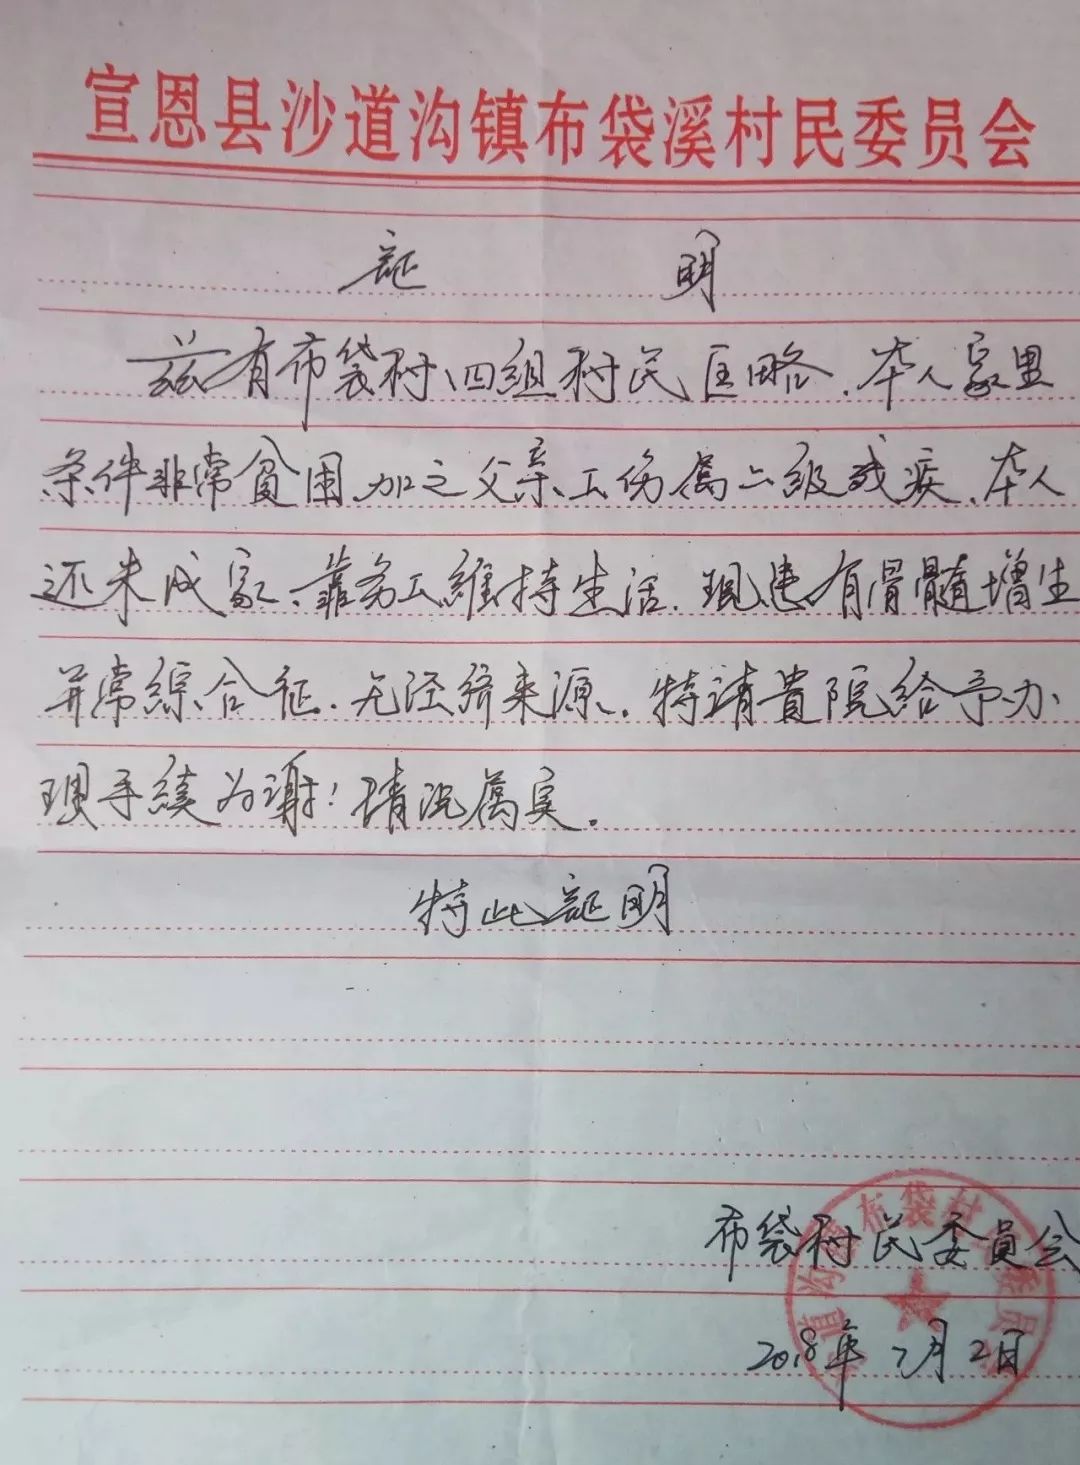 宣恩县沙道沟镇布袋溪村民委员会
証 明
兹有布袋村四组村民匡略、本人家里
条件非常贫困、加之父亲工伤属二级残疾、本人
还未成家、靠务工维持生活、现患有骨髓增生
异常综合征、无经济来源、特请贵院给予办
理手续为谢！情况属实。
特此証明
布袋村民委员会
2018年 月2日
道沟 布袋村 委员